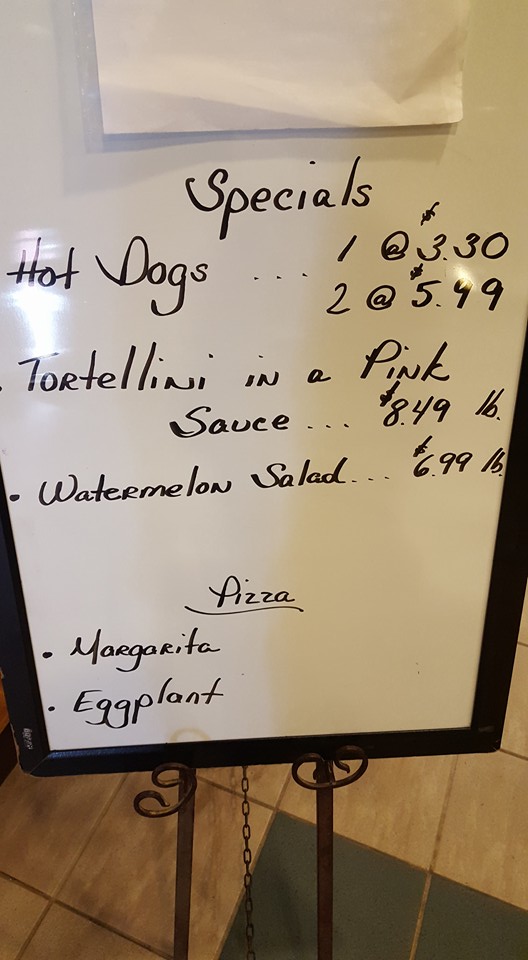 Specials
Hot Dogs .... 1 @ $3.30
2 @ $5.49
• Tortellini in a Pink
Sauce ... $8.49 lb.
• Watermelon Salad... $6.99 lb.
Pizza
• Margarita
• Eggplant